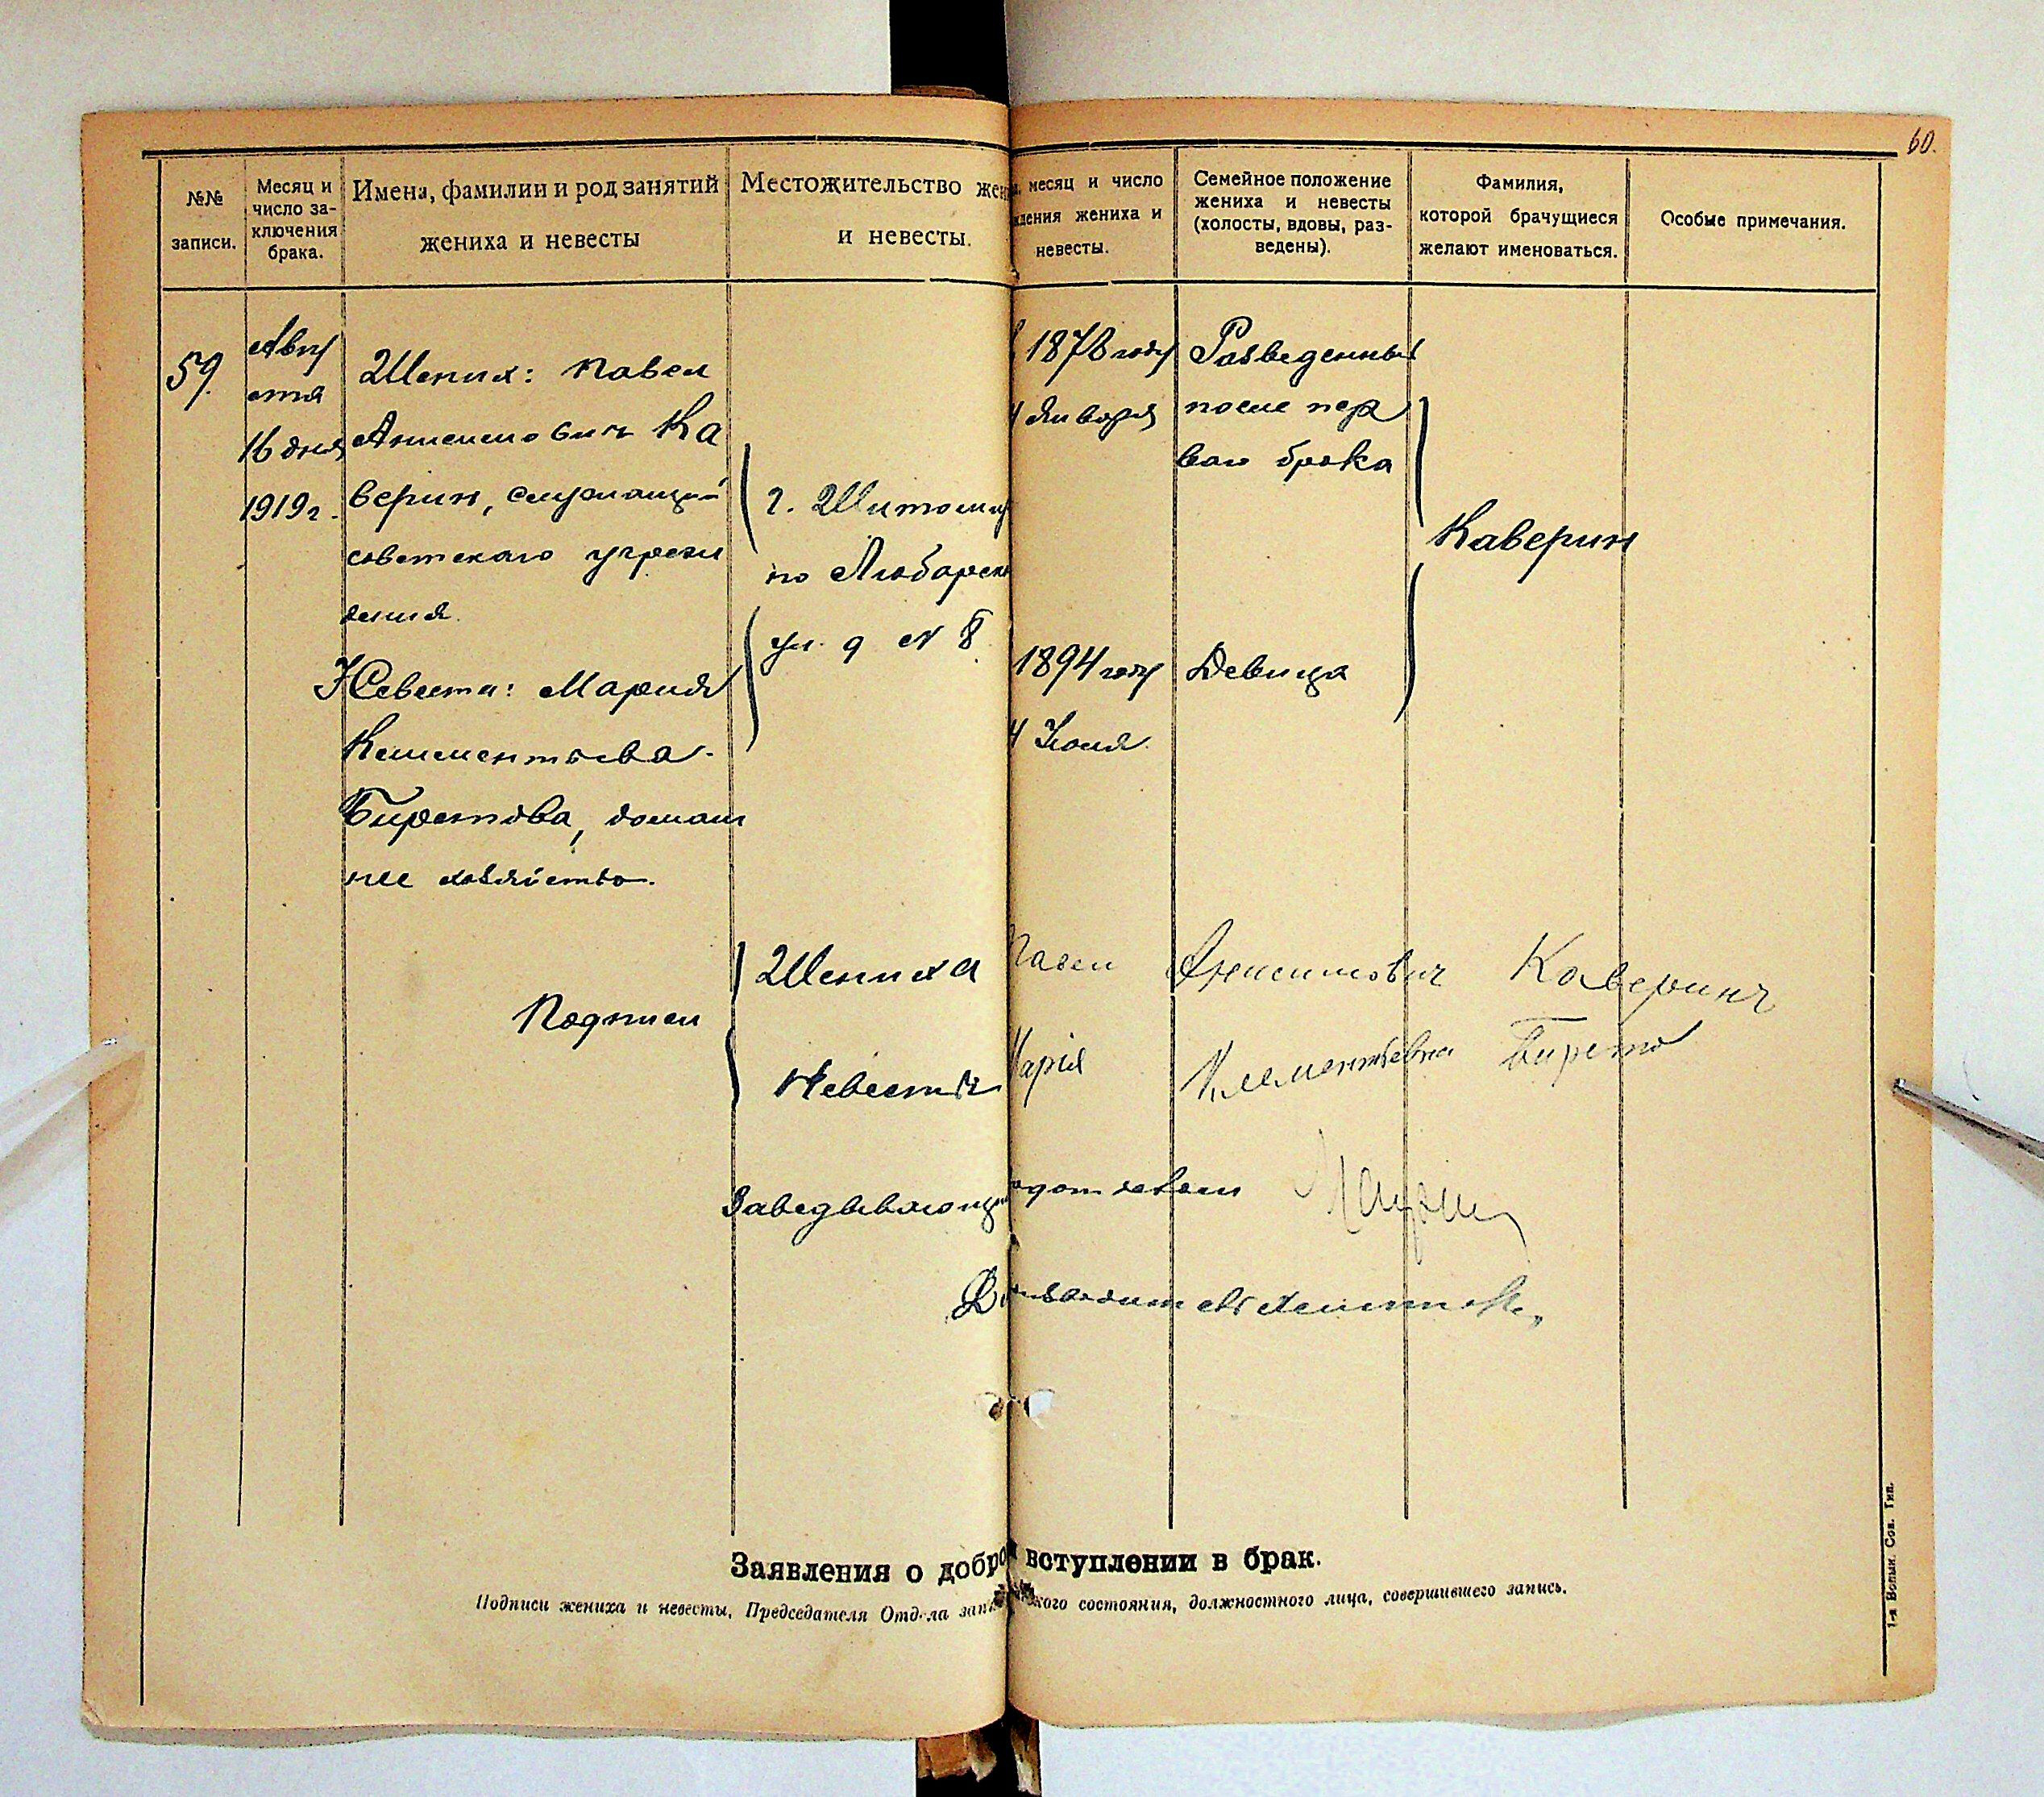 60.
№№
записи.
Месяц и
число за-
ключения
брака.
Имена, фамилии и род занятий
жениха и невесты
Местожительство жен
и невесты.
месяц и число
ждения жениха и
невесты.
Семейное положение
жениха и невесты
(холосты, вдовы, раз-
ведены).
Фамилия,
которой брачущиеся
желают именоваться.
Особые примечания.
59.
Авгу
ста
16 дня
1919 г.
Жених: Павел
Анисимович Ка
верин, служащий
советского учреж
дения.
Невеста: Мария
Клементьева
Биретова, домаш
нее хозяйство.
г. Житомир
по Любарск
ул. д № 8.
1878 году
4 Января
1894 году
4 Июля.
Разведенный
после пер
ваго брака
Девица
Каверин
Подписи
Жениха
Павел Анисимович Каверинъ
Невесты
Марія Клементьевна Бирето
Заведывающ подотделом
Заявления о добро вступлении в брак.
Подписи жениха и невесты, Председателя Отдела запи кого состояния, должностного лица, совершившего запись.
1-я Волын. Сов. Тип.